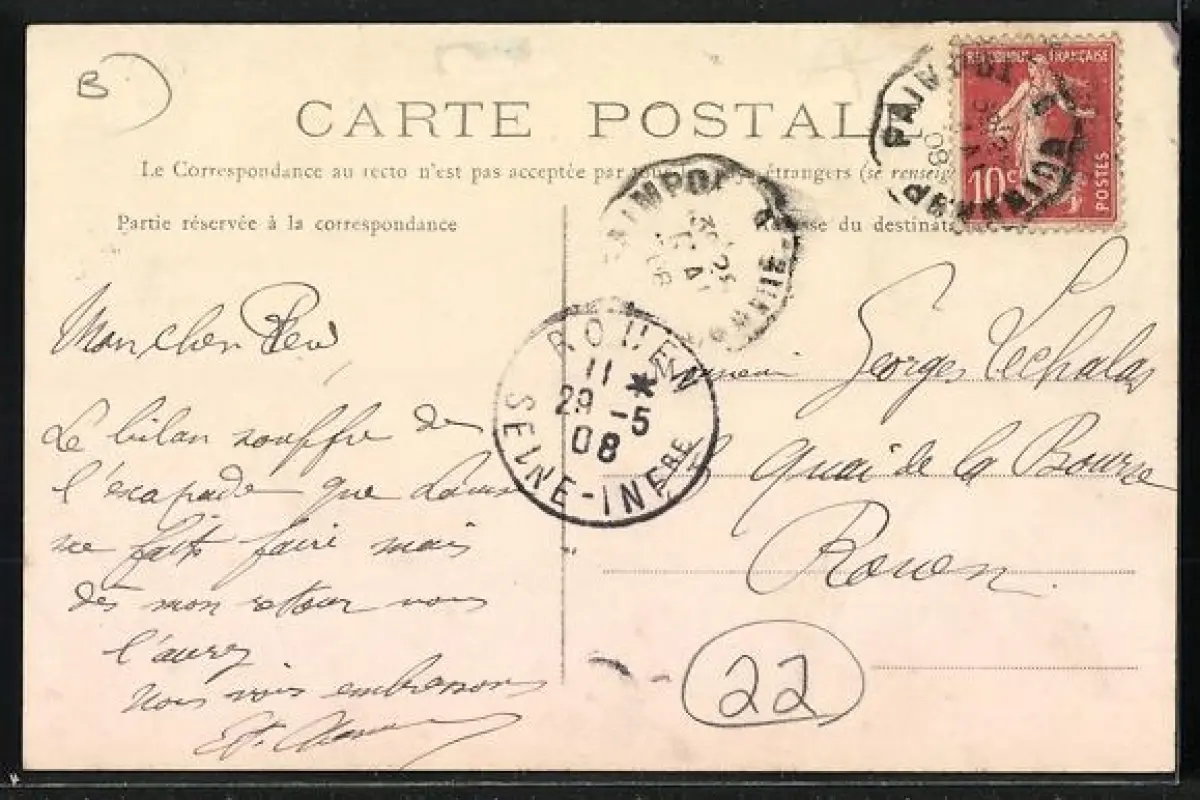 B
CARTE POSTALE
La Correspondance au recto n'est pas acceptée par tous les pays étrangers (se renseigner
Partie réservée à la correspondance
Adresse du destinataire
REPUBLIQUE FRANÇAISE
10 c
POSTES
PAIMPOL
08
PAIMPOL
ROUEN
11 *
29 -5
08
SEINE-INFRE
Mon cher
Le bilan souffre de
l'escapade que Louis
me fait faire mais
dès mon retour vous
l'aurez
Nous vous embrassons
Monsieur Georges Lechalas
Quai de la Bourse
Rouen
22